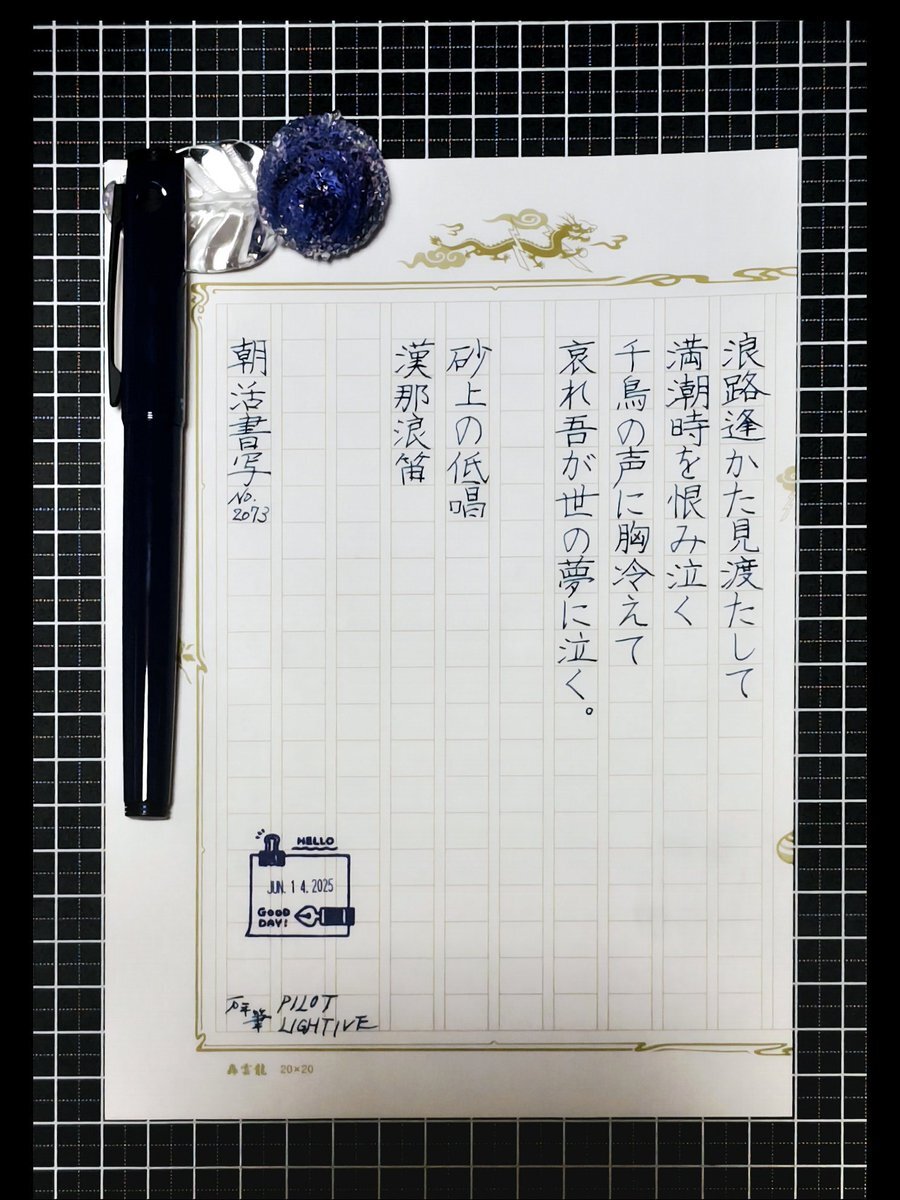 浪路逢かた見渡たして
満潮時を恨み泣く
千鳥の声に胸冷えて
哀れ吾が世の夢に泣く。
砂上の低唱
漢那浪笛
朝活書写 No. 2073
HELLO
JUN. 14. 2025
GOOD
DAY!
万年筆 PILOT
LIGHTIVE
20×20